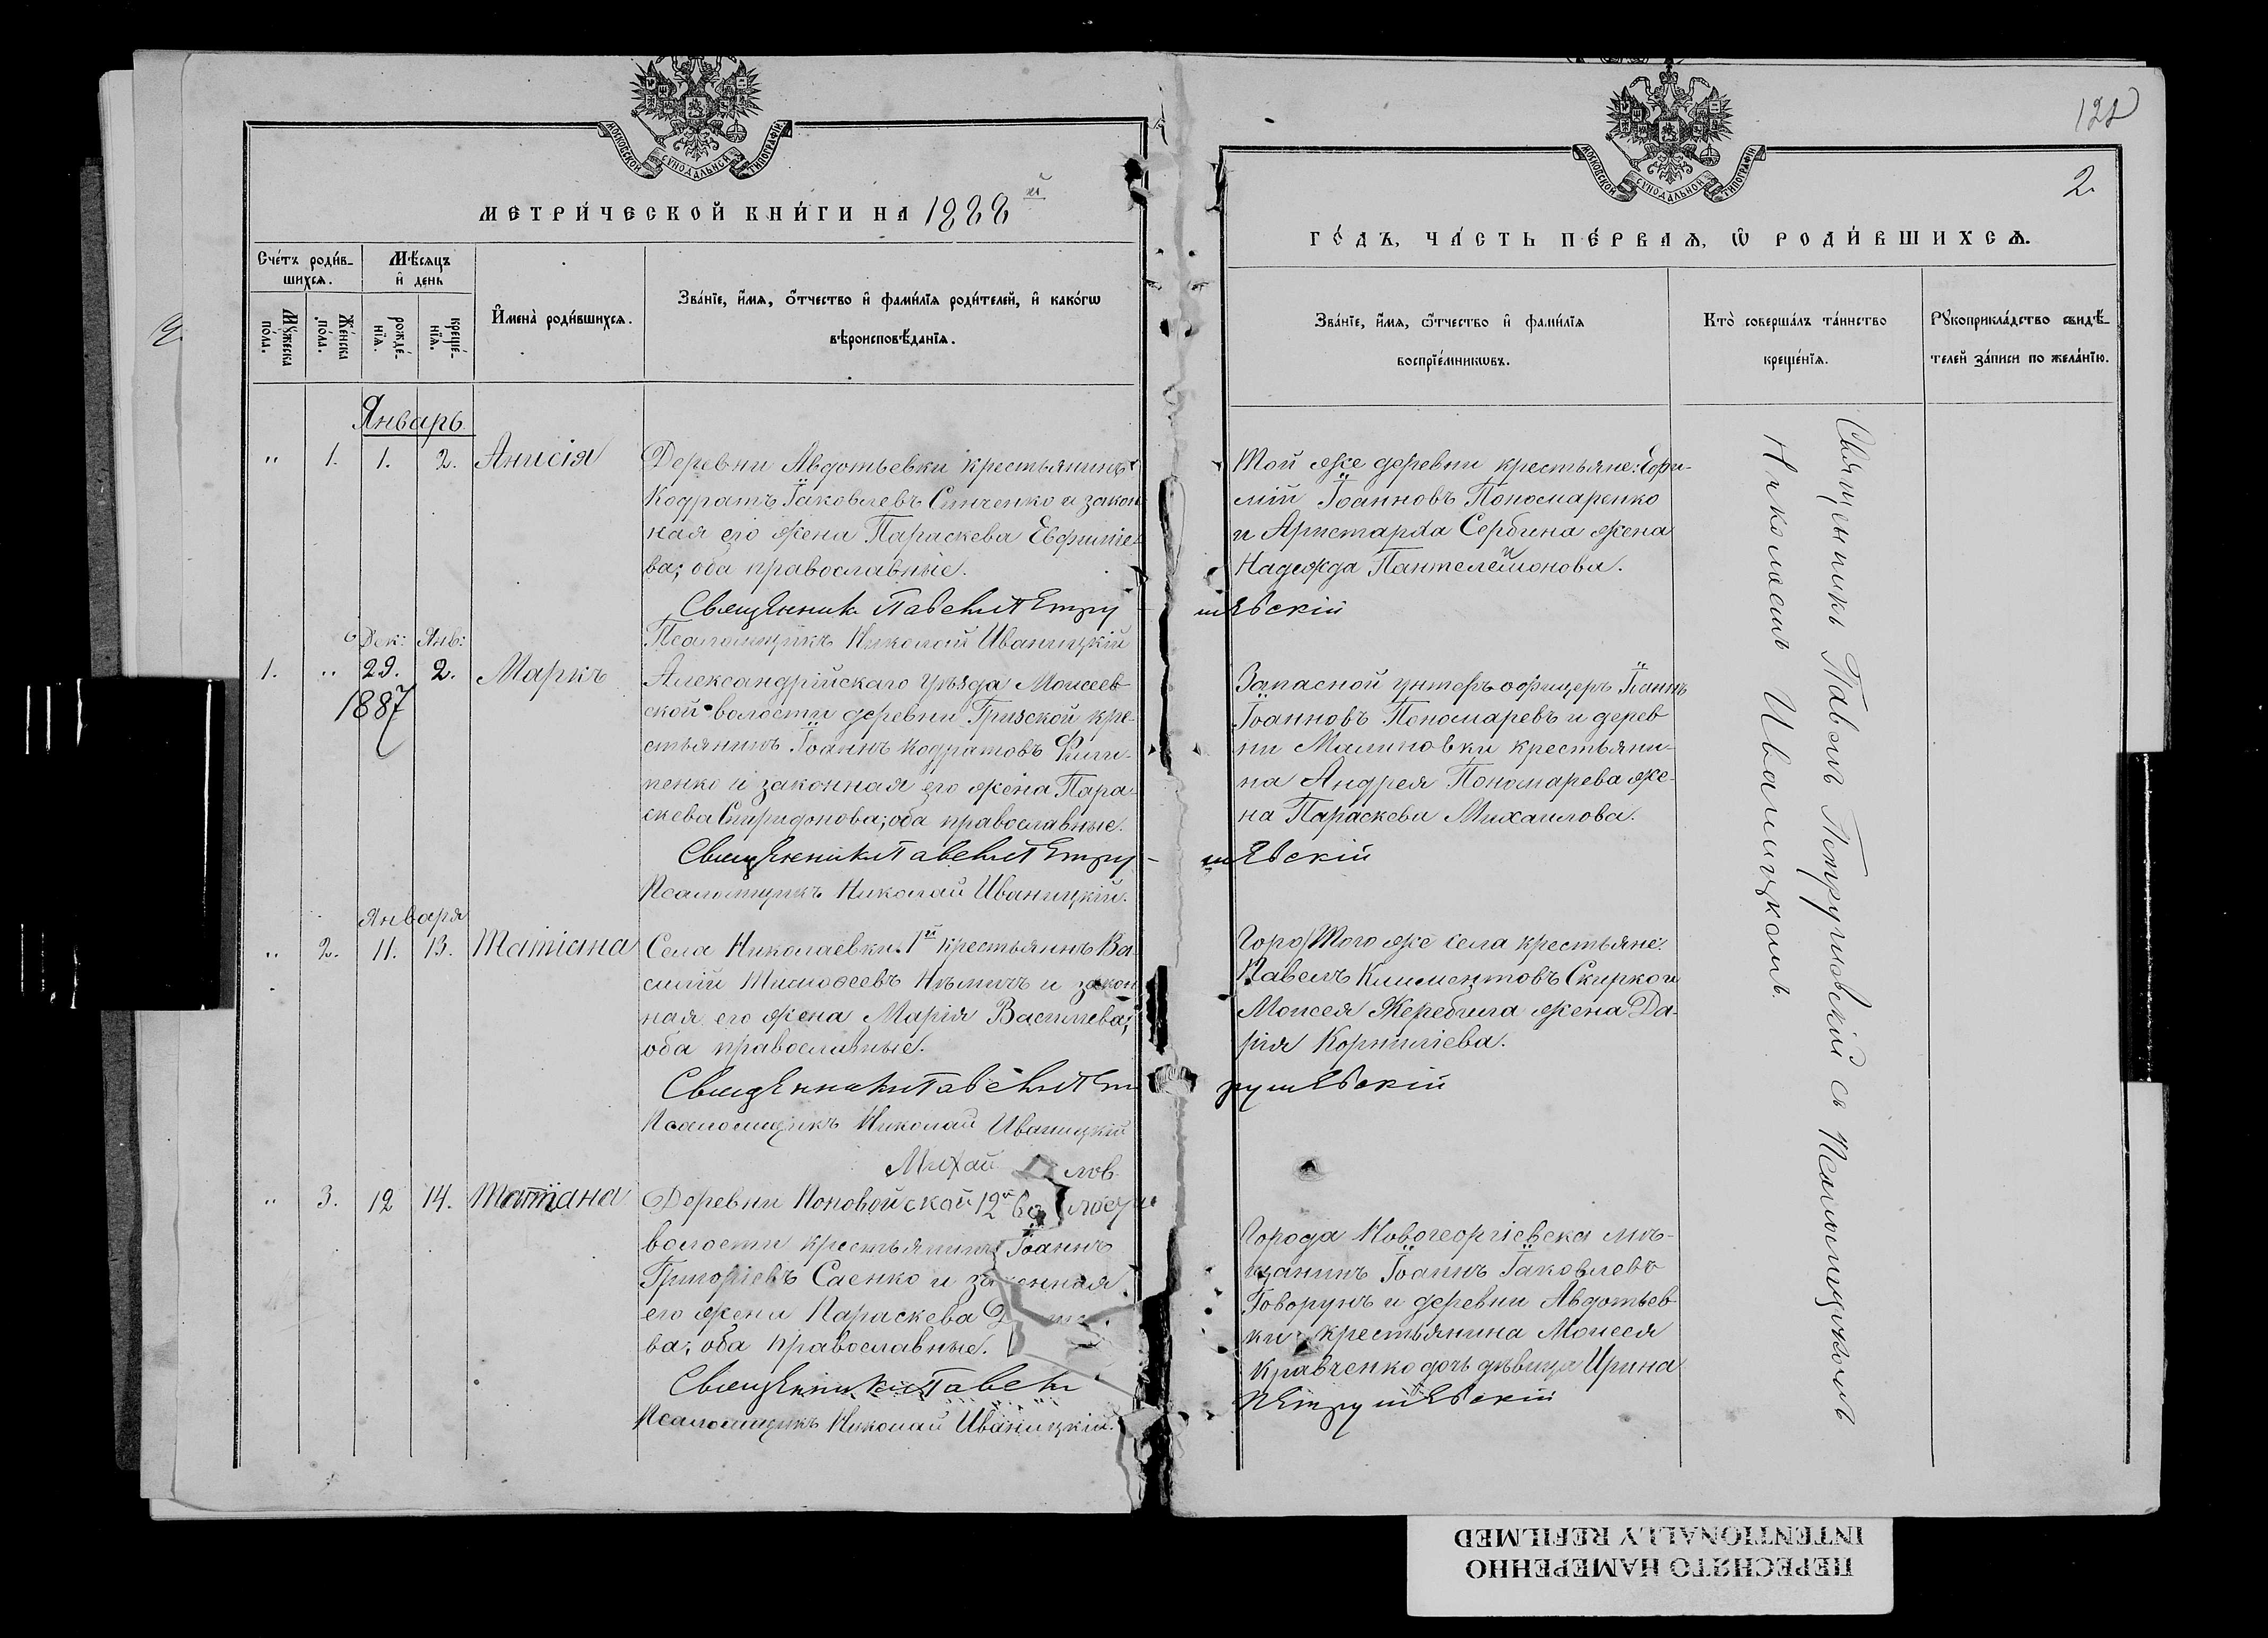 МОСКОВСКОЙ СУНОДАЛЬНОЙ ТИПОГРАФІИ
МЕТРИ́ЧЕСКОЙ КНИ́ГИ НА 1888 й
Сче́тъ роди́в-
шихсѧ.
Мѣ́сѧцъ
и҆ день
Мꙋ́жеска
по́ла.
Же́нска
по́ла.
рожде́-
нїѧ.
креще́-
нїѧ.
И҆мена̀ роди́вшихсѧ.
Зва́нїе, и҆́мѧ, ѻ҆́тчество и҆ фами́лїѧ роди́телей, и҆ како́гѡ
вѣроисповѣ́данїѧ.
Январь
" 1. 1. 2. Анисія
Деревни Авдотьевки крестьянинъ
Кодратъ Іаковлевъ Синченко и закон
ная его жена Параскева Евфиміе-
ва; оба православные.
Священникъ Павелъ Петру
Псаломщикъ Николай Иваницкій
Дек: Янв:
1. " 29. 2. Маркъ
1887
Александрійскаго уѣзда Моисеев
ской волости деревни Гризской кре-
стьянинъ Іоаннъ Кодратовъ Фили-
пенко и законная его жена Пара-
скева Спиридонова; оба православные.
Священникъ Павелъ Петру-
Псаломщикъ Николай Иваницкій.
Января
" 2. 11. 13. Татіана
Села Николаевки 1й крестьянинъ Ва
силій Тимоѳеевъ Нѣмичъ и закон
ная его жена Марія Василіева;
оба православные.
Священникъ Павелъ Пет
Псаломщикъ Николай Иваницкій
Михай лов
" 3. 12 14. Татіана
Деревни Поповой ской 12й
волости крестьянинъ Іоаннъ
Григоріевъ Саенко и законная
его жена Параскева
ва; оба православные.
Священникъ Павелъ
Псаломщикъ Николай Иваницкій.
122
2.
МОСКОВСКОЙ СУНОДАЛЬНОЙ ТИПОГРАФІИ
ГО́ДЪ, ЧА́СТЬ ПЕ́РВАѦ, Ѡ҆ РОДИ́ВШИХСѦ.
Зва́нїе, и҆́мѧ, ѻ҆́тчество и҆ фами́лїѧ
воспрїе́мникѡвъ.
Кто̀ соверша́лъ та́инство
креще́нїѧ.
Рꙋкоприкла́дство свидѣ́-
телей за́писи по жела́нїю.
Той же деревни крестьяне: Ефи-
мій Іоанновъ Пономаренко
и Аристарха Сербина жена
Надежда Пантелеимонова.
шевскій
Запасной унтеръ-офицеръ Іоаннъ
Іоанновъ Пономаревъ и дерев
ни Малиновки крестьяни-
на Андрея Пономарева же-
на Параскева Михаилова.
шевскій
Горо/Того же села крестьяне:
Павелъ Климентовъ Скирко и
Моисея Жеребила жена Да-
рія Корниліева.
рушевскій
Города Новогеоргіевска мѣ-
щанинъ Іоаннъ Іаковлевъ
Говорунъ и деревни Авдотьев
ки крестьянина Моисея
Кравченко дочь дѣвица Ирина
Петрушевскій
Священникъ Павелъ Петрушевскій съ Псаломщикомъ
Николаемъ Иваницкимъ.
ПЕРЕСНЯТО НАМЕРЕННО
INTENTIONALLY REFILMED